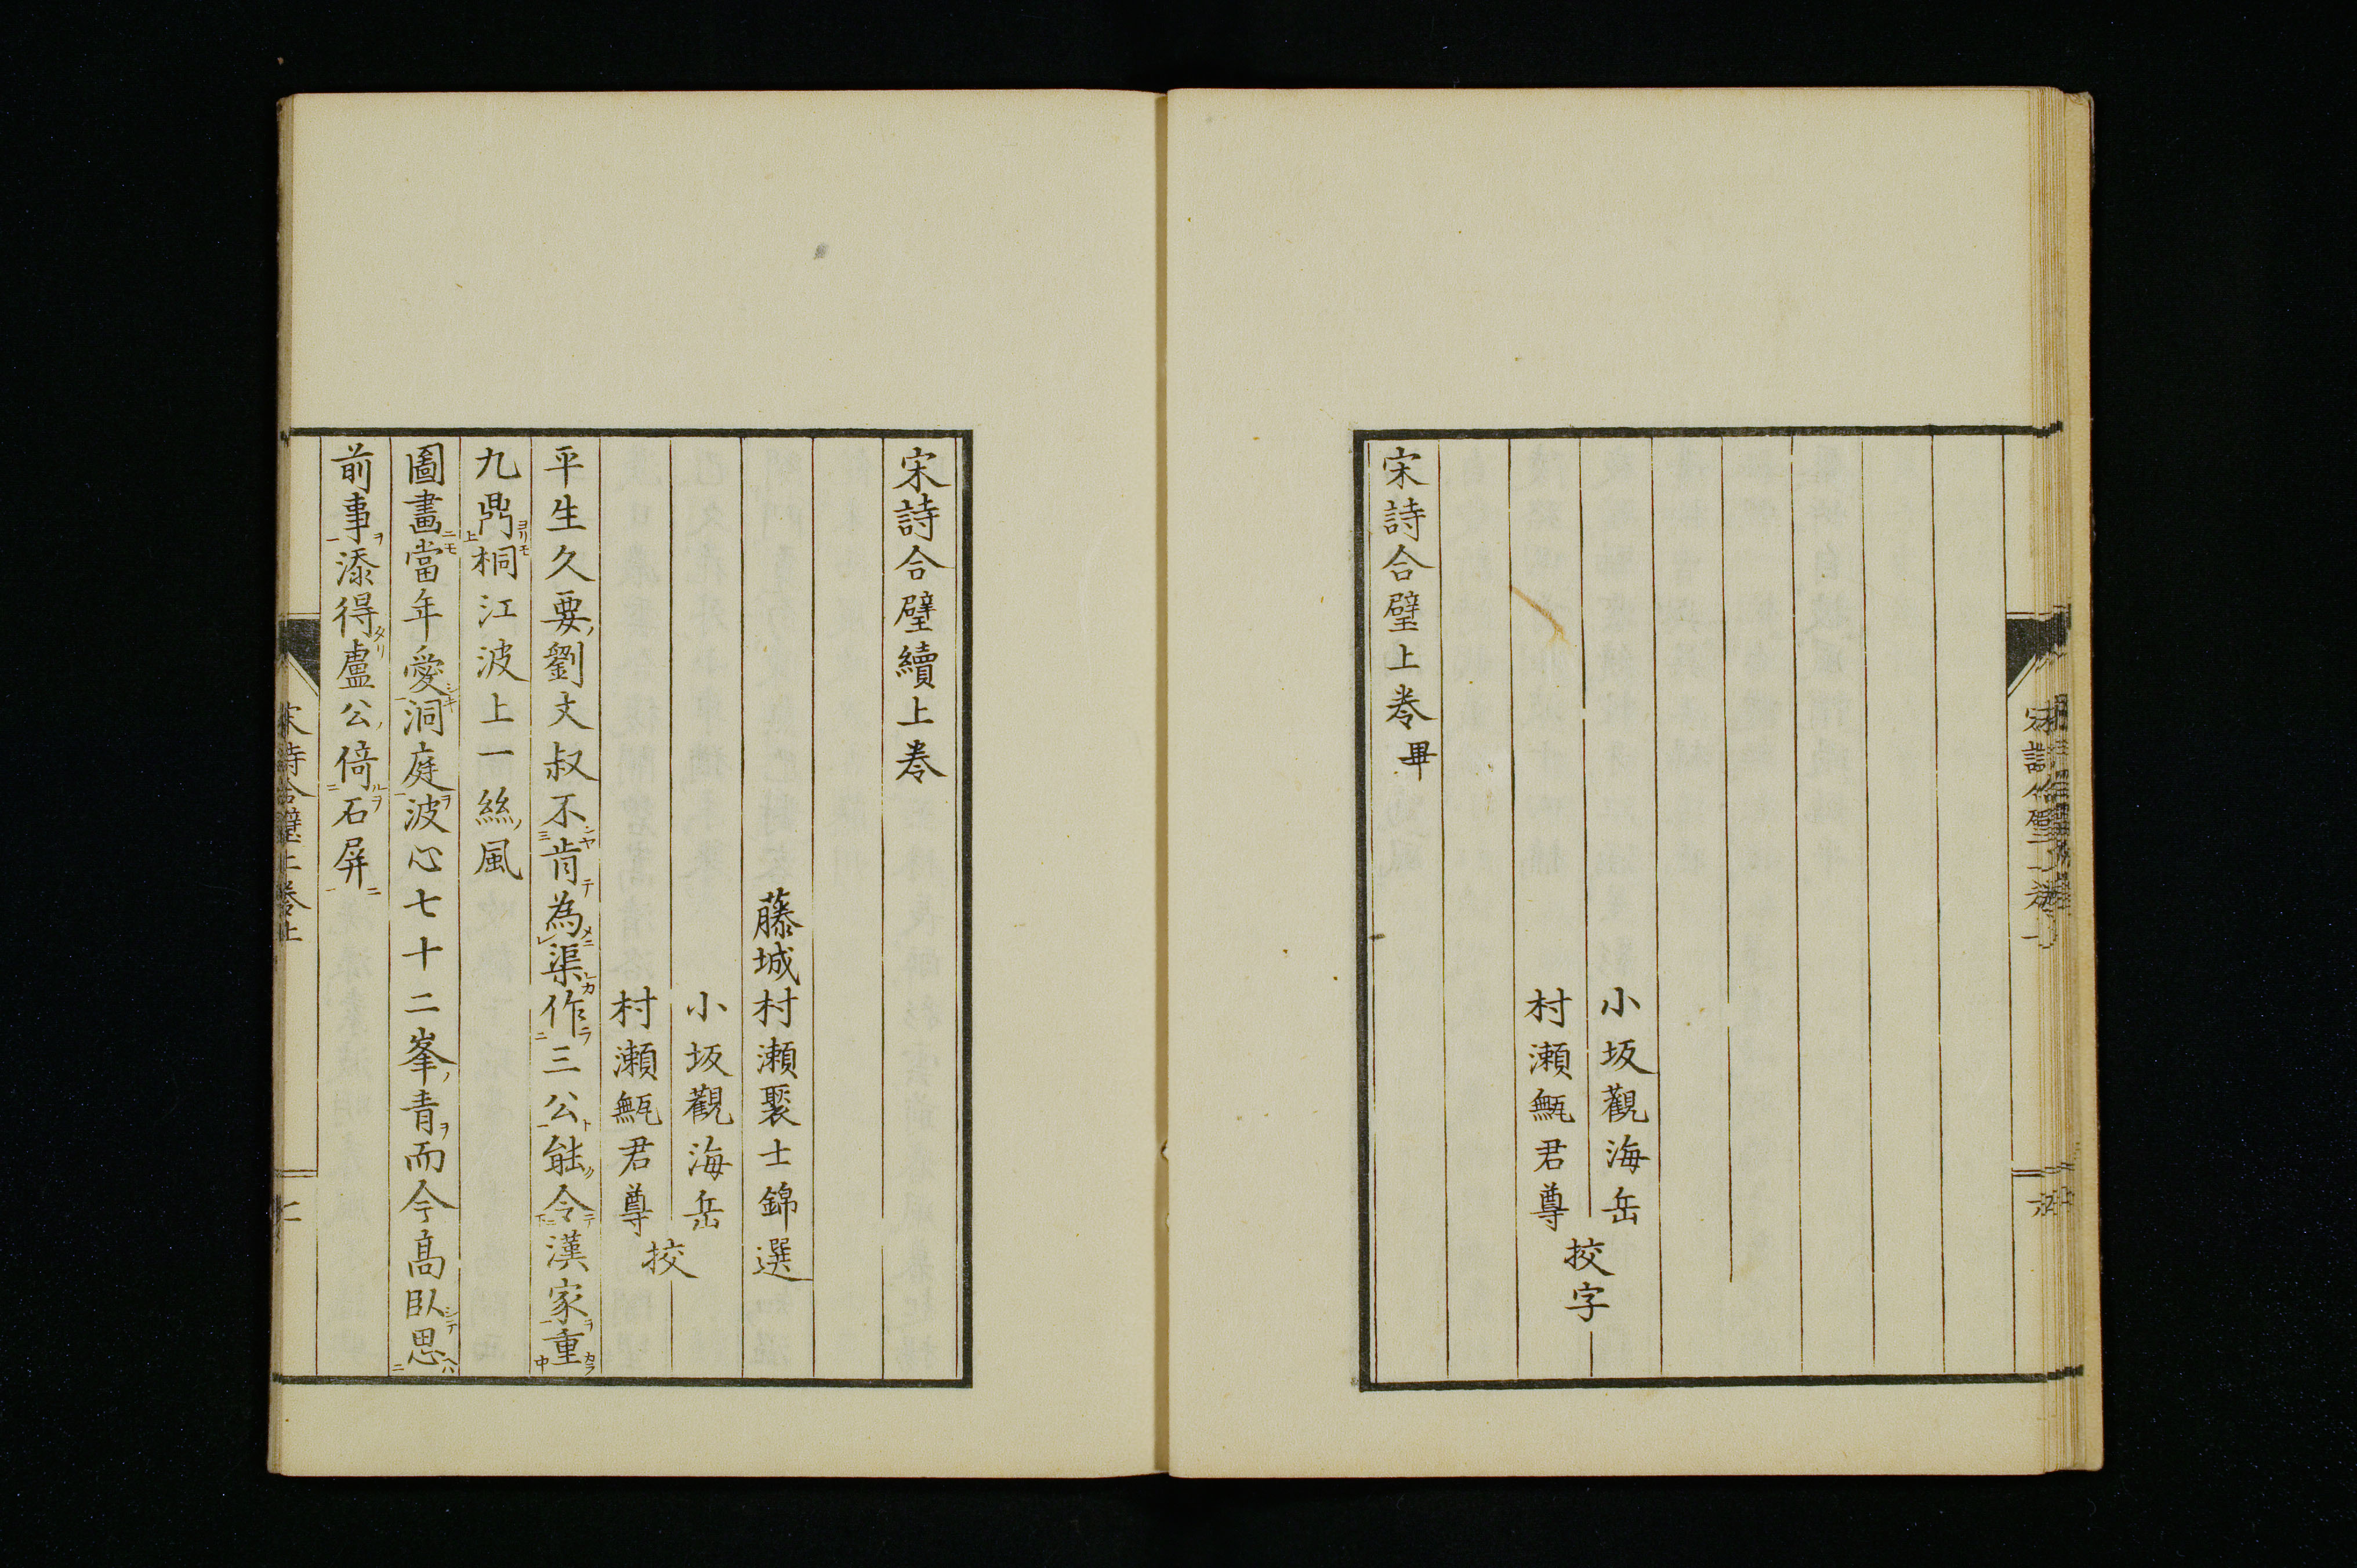 小坂觀海岳
村瀬甒君尊
挍字
宋詩合璧上巻畢
宋詩合璧續上巻
藤城村瀬褧士錦選
小坂觀海岳
村瀬甒君尊
挍
平生久要劉文叔不肯為渠作三公能令漢家重
九鼎桐江波上一絲風
圖畫當年愛洞庭波心七十二峯青而今高臥思
前事添得盧公倚石屏